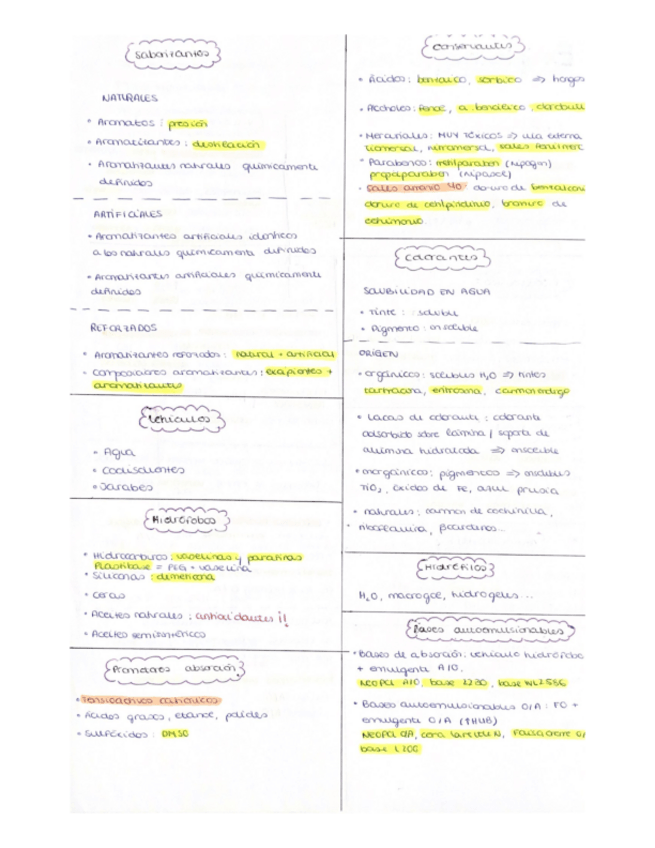 Saborizantes
NATURALES
• Aromatos : presión
• Aromatizantes : destilación
• Aromatizantes naturales químicamente
definidos
ARTIFICIALES
• Aromatizantes artificiales idénticos
a los naturales químicamente definidos
• Aromatizantes artificiales químicamente
definidos
REFORZADOS
• Aromatizantes reforzados : natural + artificial
• Composiciones aromatizantes : excipientes +
aromatizantes
Vehículos
• Agua
• Codisolventes
• Jarabes
Hidrófobos
• Hidrocarburos : vaselinas y parafinas
Plastibase = PEG + vaselina
• Siliconas : dimeticona
• Ceras
• Aceites naturales : antioxidantes ¡!
• Aceites semisintéticos
Promotores absorción
• Tensioactivos catiónicos
• Ácidos grasos, etanol, polioles
• Sulfóxidos : DMSO
Conservantes
• Ácidos: benzoico, sórbico => hongos
• Alcoholes: fenol, a. bencílico,
• Mercuriales: MUY TÓXICOS => vía externa
tiomersal, nitromersol, sales
• Parabenos: metilparaben (nipagin)
propilparaben (nipasol)
• Sales amonio 4º cloruro de
cloruro de cetilpiridinio, bromuro de
Colorantes
SOLUBILIDAD EN AGUA
• Tinte : soluble
• Pigmento : insoluble
ORIGEN
• orgánicos: solubles H₂O => tintes
tartracina, eritrosina, carmín índigo
• Lacas de colorante : colorante
adsorbido sobre lámina / soporte de
alúmina hidratada => insoluble
• inorgánicos: pigmentos => insolubles
TiO₂, óxidos de Fe, azul prusia
• naturales: carmín de cochinilla,
• riboflavina,
Hidrófilos
H₂O, macrogol, hidrogeles...
Bases autoemulsionables
• Bases de absorción: vehículo hidrófobo
+ emulgente A/O.
NEOPCL A/O, base L230, base
• Bases autoemulsionables O/A : FO +
emulgente O/A (↑HLB)
NEOPCL O/A, cera Lanette N,
base L200